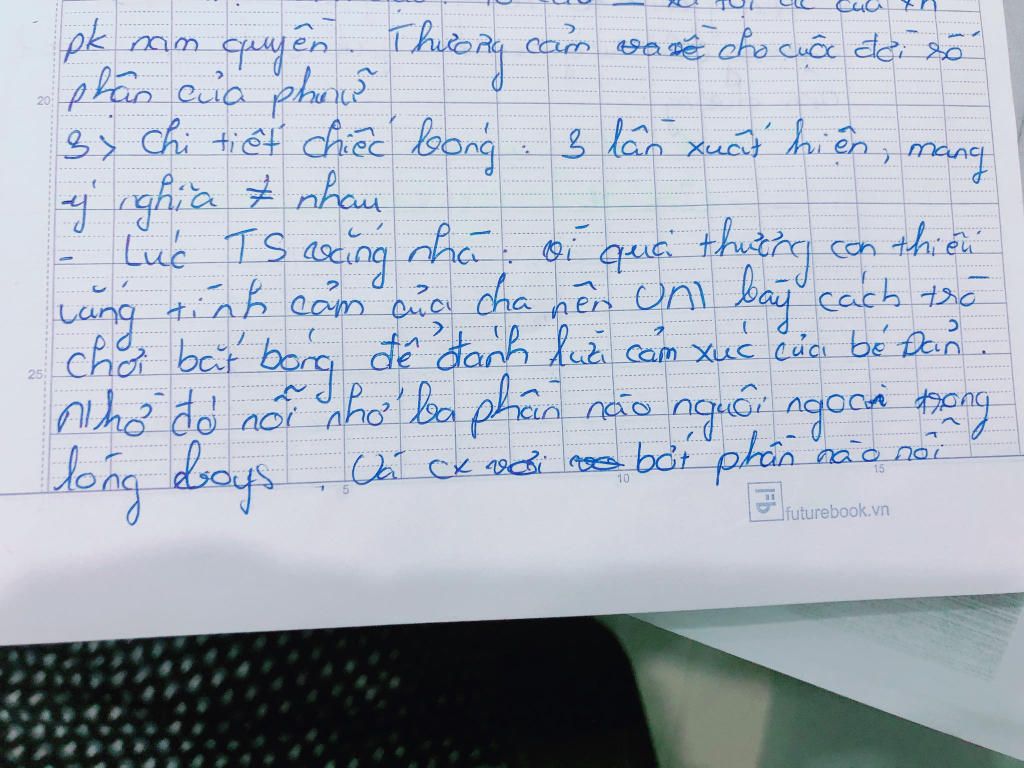 của xh
pk nam quyền. Thương cảm cho cuộc đời số
20
phận của phụ nữ
3> Chi tiết chiếc bóng: 3 lần xuất hiện, mang
ý nghĩa ≠ nhau
- Lúc TS vắng nhà: vì quá thương con thiếu
vắng tình cảm của cha nên VN bày cách trò
chơi bắt bóng để đánh lừa cảm xúc của bé Đản.
25
Nhờ đó nỗi nhớ ba phần nào nguôi ngoai trong
lòng boys. Và cx bớt phần nào nỗi
5 10 15
futurebook.vn